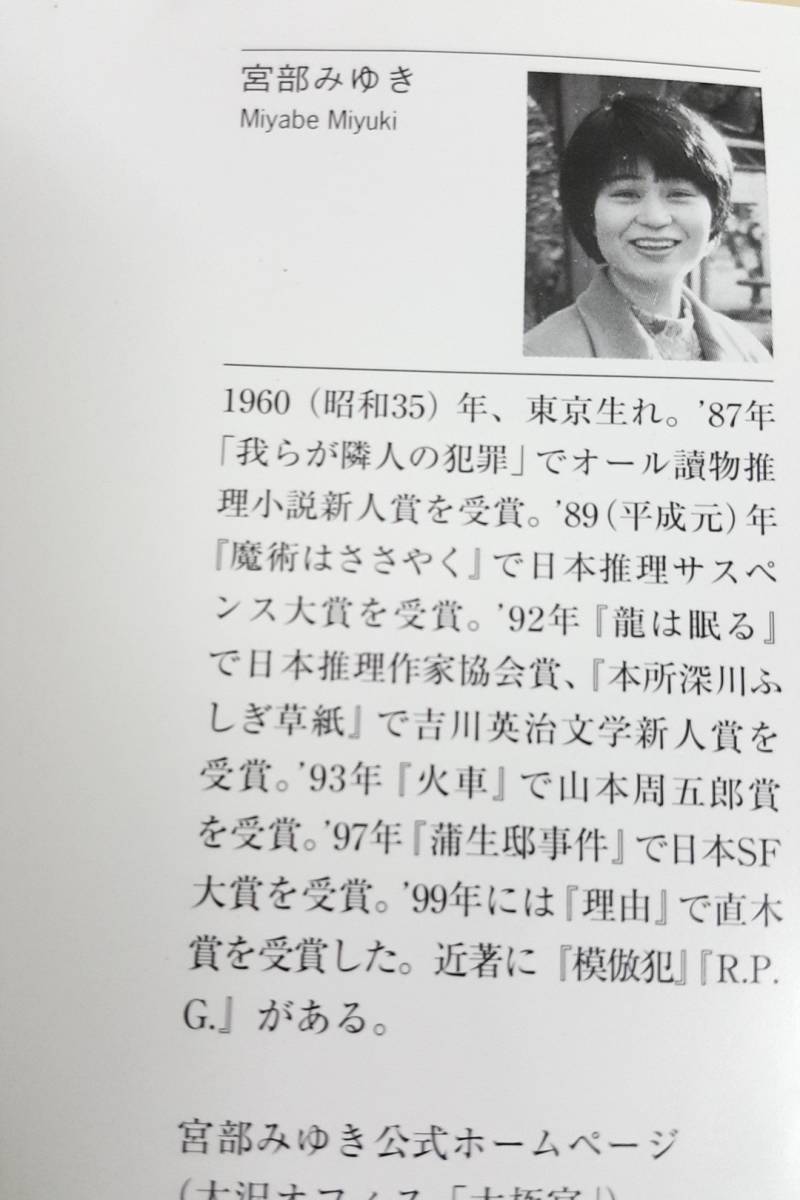 宮部みゆき
Miyabe Miyuki
1960（昭和35）年、東京生れ。’87年
「我らが隣人の犯罪」でオール讀物推
理小説新人賞を受賞。’89（平成元）年
『魔術はささやく』で日本推理サスペ
ンス大賞を受賞。’92年『龍は眠る』
で日本推理作家協会賞、『本所深川ふ
しぎ草紙』で吉川英治文学新人賞を
受賞。’93年『火車』で山本周五郎賞
を受賞。’97年『蒲生邸事件』で日本SF
大賞を受賞。’99年には『理由』で直木
賞を受賞した。近著に『模倣犯』『R.P.
G.』がある。
宮部みゆき公式ホームページ
（大沢オフィス「大極宮」）